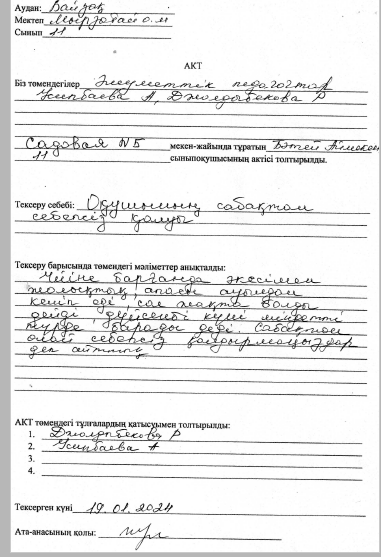 Аудан: Байзақ
Мектеп Мырзатай о.м
Сынып 11
АКТ
Біз төмендегілер Әлеуметтік педагогтар
Усипбаева А, Джолдыбекова Р
Садовая №5 мекен-жайында тұратын
11 сыныпоқушысының актісі толтырылды.
Тексеру себебі: Оқушының сабақтан
себепсіз қалуы
Тексеру барысында төмендегі мәліметтер анықталды:
Үйіне барғанда әкесімен
жолықтық, апасы ауылдан
келіп еді, сол жақта болды
дейді дүйсенбі күні міндетті
түрде барады деді. Сабақтан
олай себепсіз қалдырмаңыздар
деп айттық
АКТ төмендегі тұлғалардың қатысуымен толтырылды:
1. Джолдыбекова Р
2. Усипбаева А
3.
4.
Тексерген күні 19.01.2024
Ата-анасының қолы: